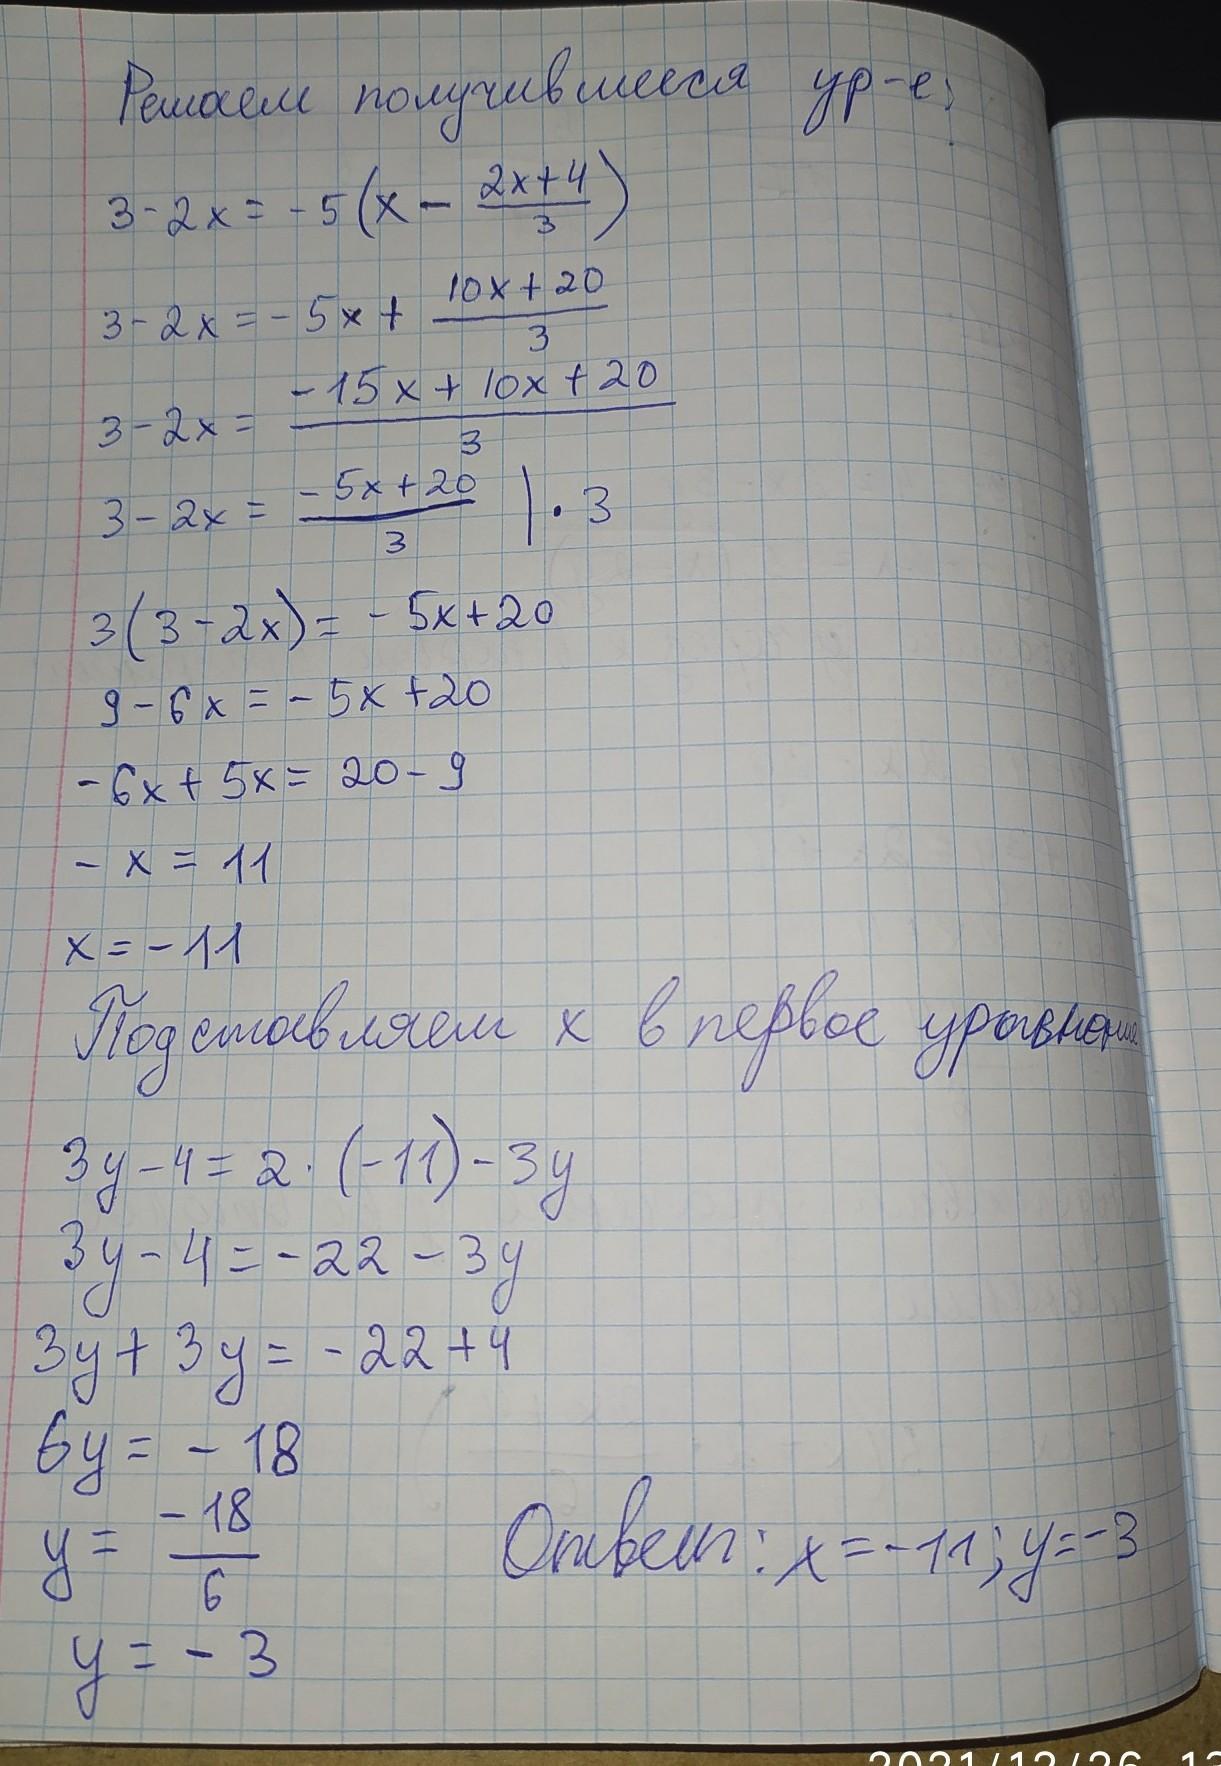 Решаем получившееся ур-е;
3-2x = -5(x - \frac{2x+4}{3})
3-2x = -5x + \frac{10x+20}{3}
3-2x = \frac{-15x+10x+20}{3}
3-2x = \frac{-5x+20}{3} | · 3
3(3-2x) = -5x+20
9-6x = -5x+20
-6x+5x = 20-9
-x = 11
x = -11
Подставляем x в первое уравнение
3y-4 = 2·(-11)-3y
3y-4 = -22-3y
3y+3y = -22+4
6y = -18
y = \frac{-18}{6}
y = -3
Ответ: x=-11; y=-3